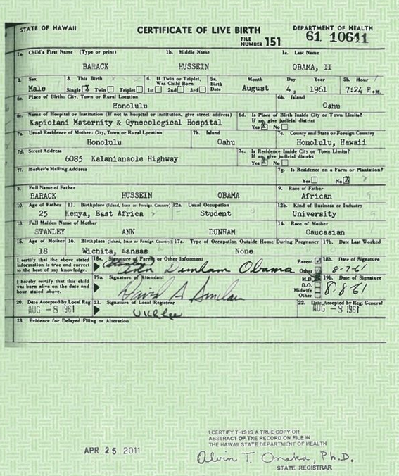 STATE OF HAWAII CERTIFICATE OF LIVE BIRTH DEPARTMENT OF HEALTH
FILE NUMBER 151 61 10641
1a. Child's First Name (Type or print) 1b. Middle Name 1c. Last Name
BARACK HUSSEIN OBAMA, II
2. Sex 3. This Birth 4. If Twin or Triplet, Was Child Born 5a. Birth Date Month Day Year 5b. Hour
Male Single Twin Triplet 1st 2nd 3rd August 4, 1961 7:24 P.M.
6a. Place of Birth: City, Town or Rural Location 6b. Island
Honolulu Oahu
6c. Name of Hospital or Institution (If not in hospital or institution, give street address) 6d. Is Place of Birth Inside City or Town Limits?
If no, give judicial district
Kapiolani Maternity & Gynecological Hospital Yes No
7a. Usual Residence of Mother: City, Town or Rural Location 7b. Island 7c. County and State or Foreign Country
Honolulu Oahu Honolulu, Hawaii
7d. Street Address 7e. Is Residence Inside City or Town Limits?
If no, give judicial district
6085 Kalanianaole Highway Yes No
7f. Mother's Mailing Address 7g. Is Residence on a Farm or Plantation?
Yes No
8. Full Name of Father 9. Race of Father
BARACK HUSSEIN OBAMA African
10. Age of Father 11. Birthplace (Island, State or Foreign Country) 12a. Usual Occupation 12b. Kind of Business or Industry
25 Kenya, East Africa Student University
13. Full Maiden Name of Mother 14. Race of Mother
STANLEY ANN DUNHAM Caucasian
15. Age of Mother 16. Birthplace (Island, State or Foreign Country) 17a. Type of Occupation Outside Home During Pregnancy 17b. Date Last Worked
18 Wichita, Kansas None
I certify that the above stated information is true and correct to the best of my knowledge.
18a. Signature of Parent or Other Informant Parent Other 18b. Date of Signature
Ann Dunham Obama 8-7-61
I hereby certify that this child was born alive on the date and hour stated above.
19a. Signature of Attendant M.D. D.O. Midwife Other 19b. Date of Signature
David A Sinclair 8-8-61
20. Date Accepted by Local Reg. 21. Signature of Local Registrar 22. Date Accepted by Reg. General
AUG -8 1961 U K L Lee AUG -8 1961
23. Evidence for Delayed Filing or Alteration
APR 25 2011
I CERTIFY THIS IS A TRUE COPY OR
ABSTRACT OF THE RECORD ON FILE IN
THE HAWAII STATE DEPARTMENT OF HEALTH
Alvin T. Onaka, Ph.D.
STATE REGISTRAR